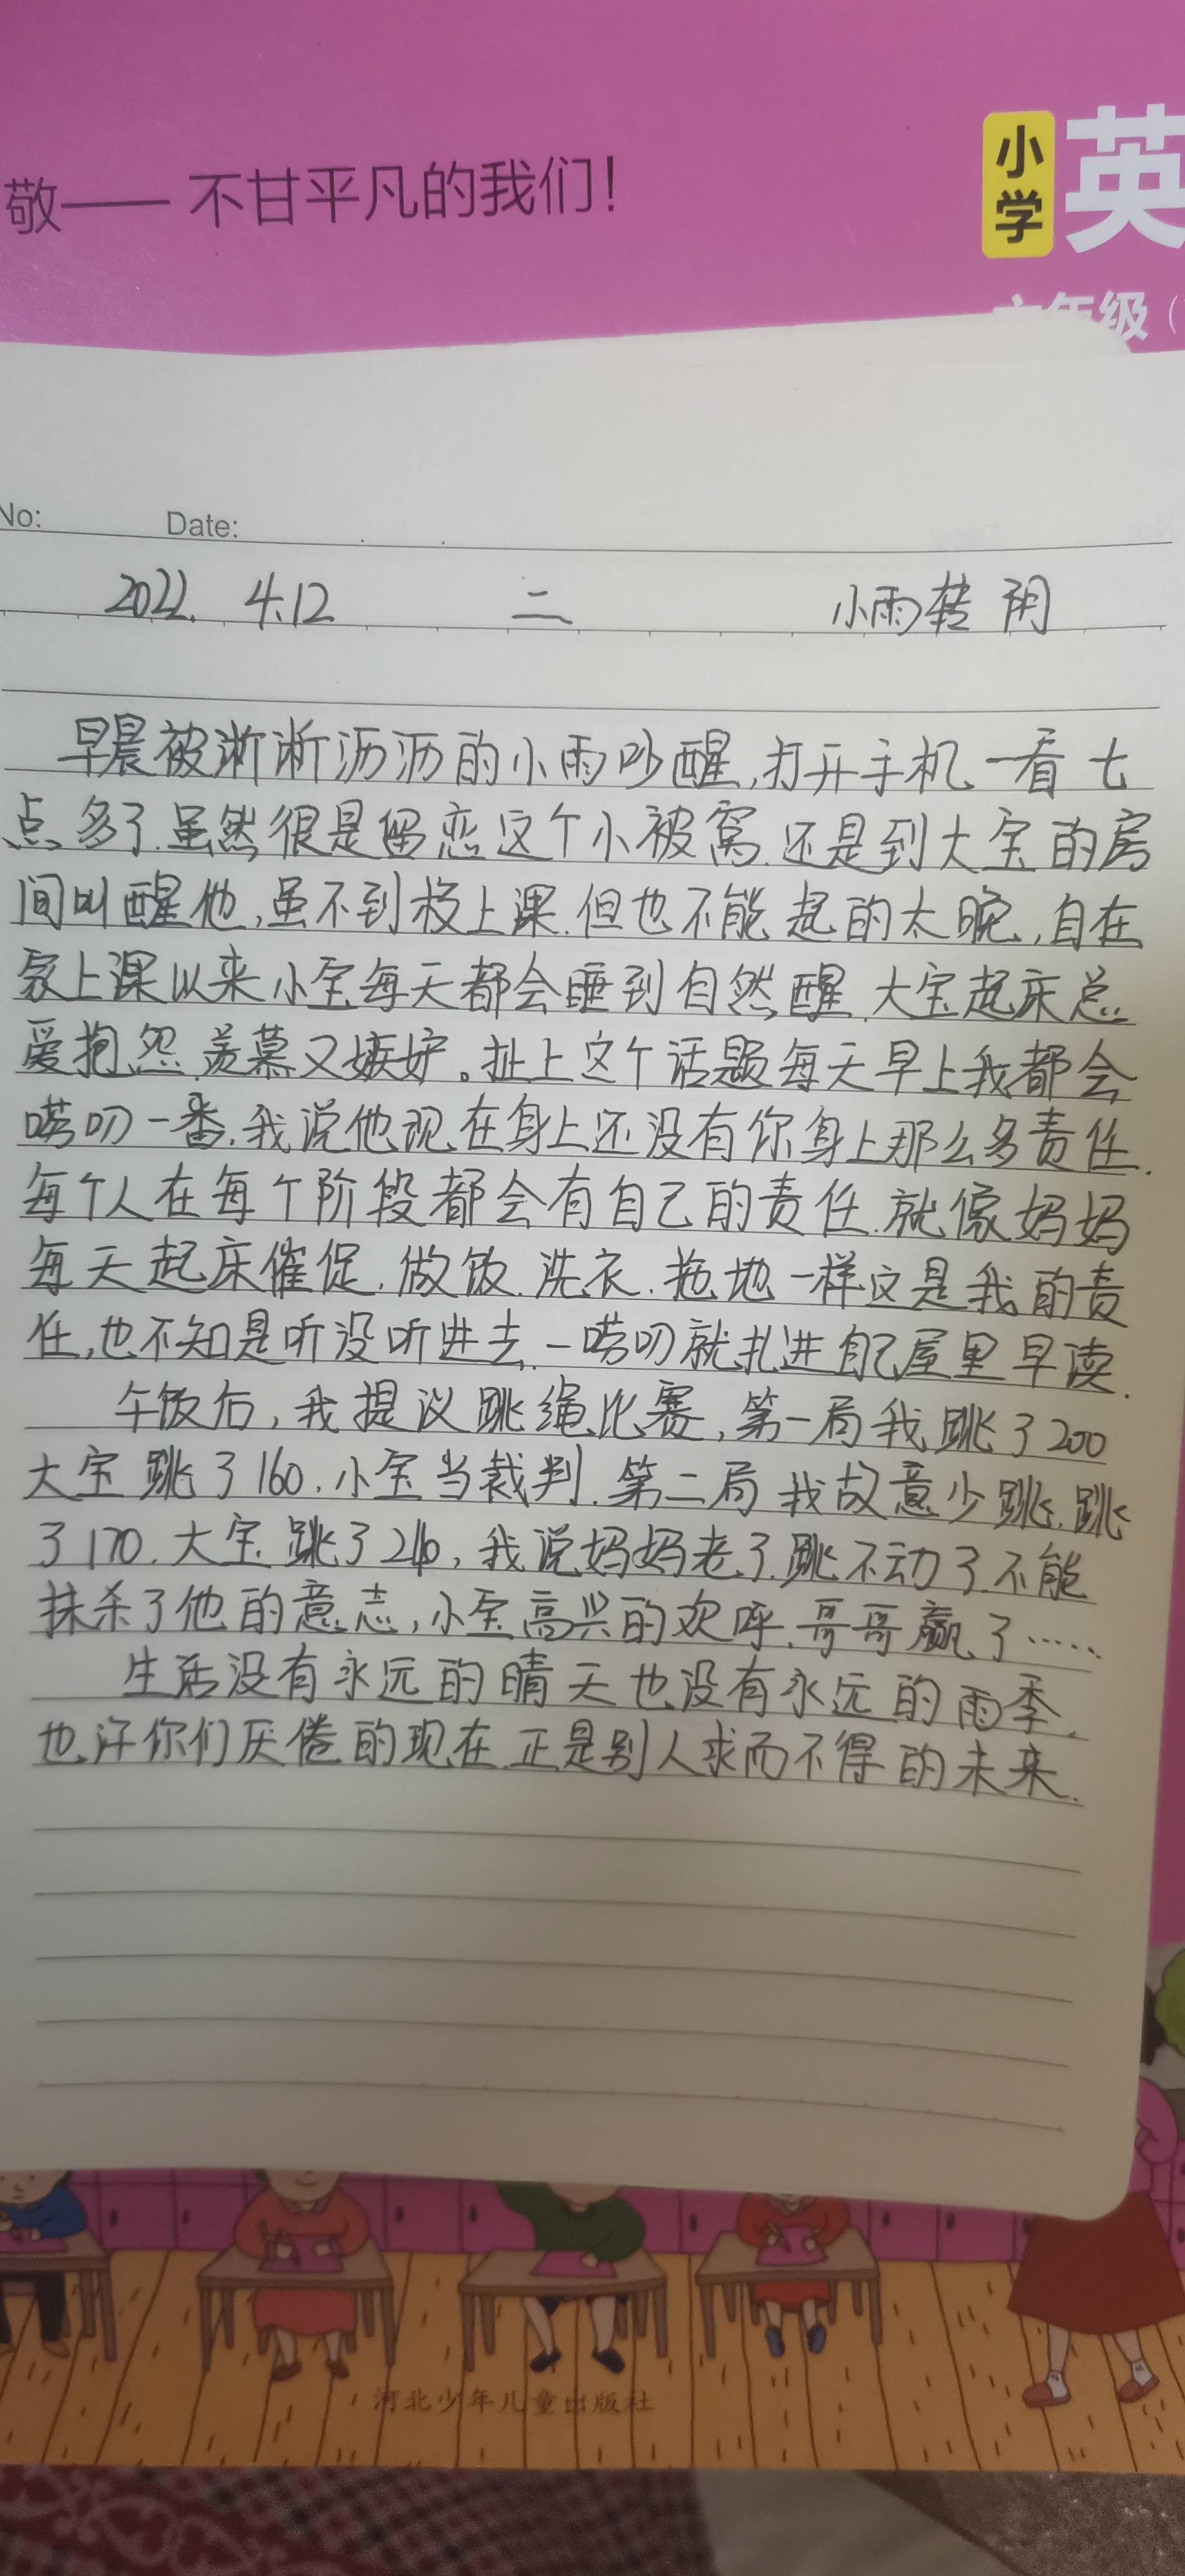 敬——不甘平凡的我们！
小学
英
六年级（
No:
Date:
2022. 4.12 二 小雨转阴
早晨被淅淅沥沥的小雨吵醒,打开手机一看七
点多了.虽然很是留恋这个小被窝.还是到大宝的房
间叫醒他,虽不到校上课.但也不能起的太晚,自在
家上课以来小宝每天都会睡到自然醒.大宝起床总
爱抱怨.羡慕又嫉妒。扯上这个话题每天早上我都会
唠叨一番.我说他现在身上还没有你身上那么多责任.
每个人在每个阶段都会有自己的责任.就像妈妈
每天起床催促.做饭.洗衣.拖地一样这是我的责
任,也不知是听没听进去.一唠叨就扎进自己屋里早读.
午饭后,我提议跳绳比赛,第一局我跳了200
大宝跳了160.小宝当裁判.第二局我故意少跳.跳
了170.大宝跳了210,我说妈妈老了.跳不动了.不能
抹杀了他的意志,小宝高兴的欢呼.哥哥赢了……
生活没有永远的晴天也没有永远的雨季.
也许你们厌倦的现在.正是别人求而不得的未来.
河北少年儿童出版社